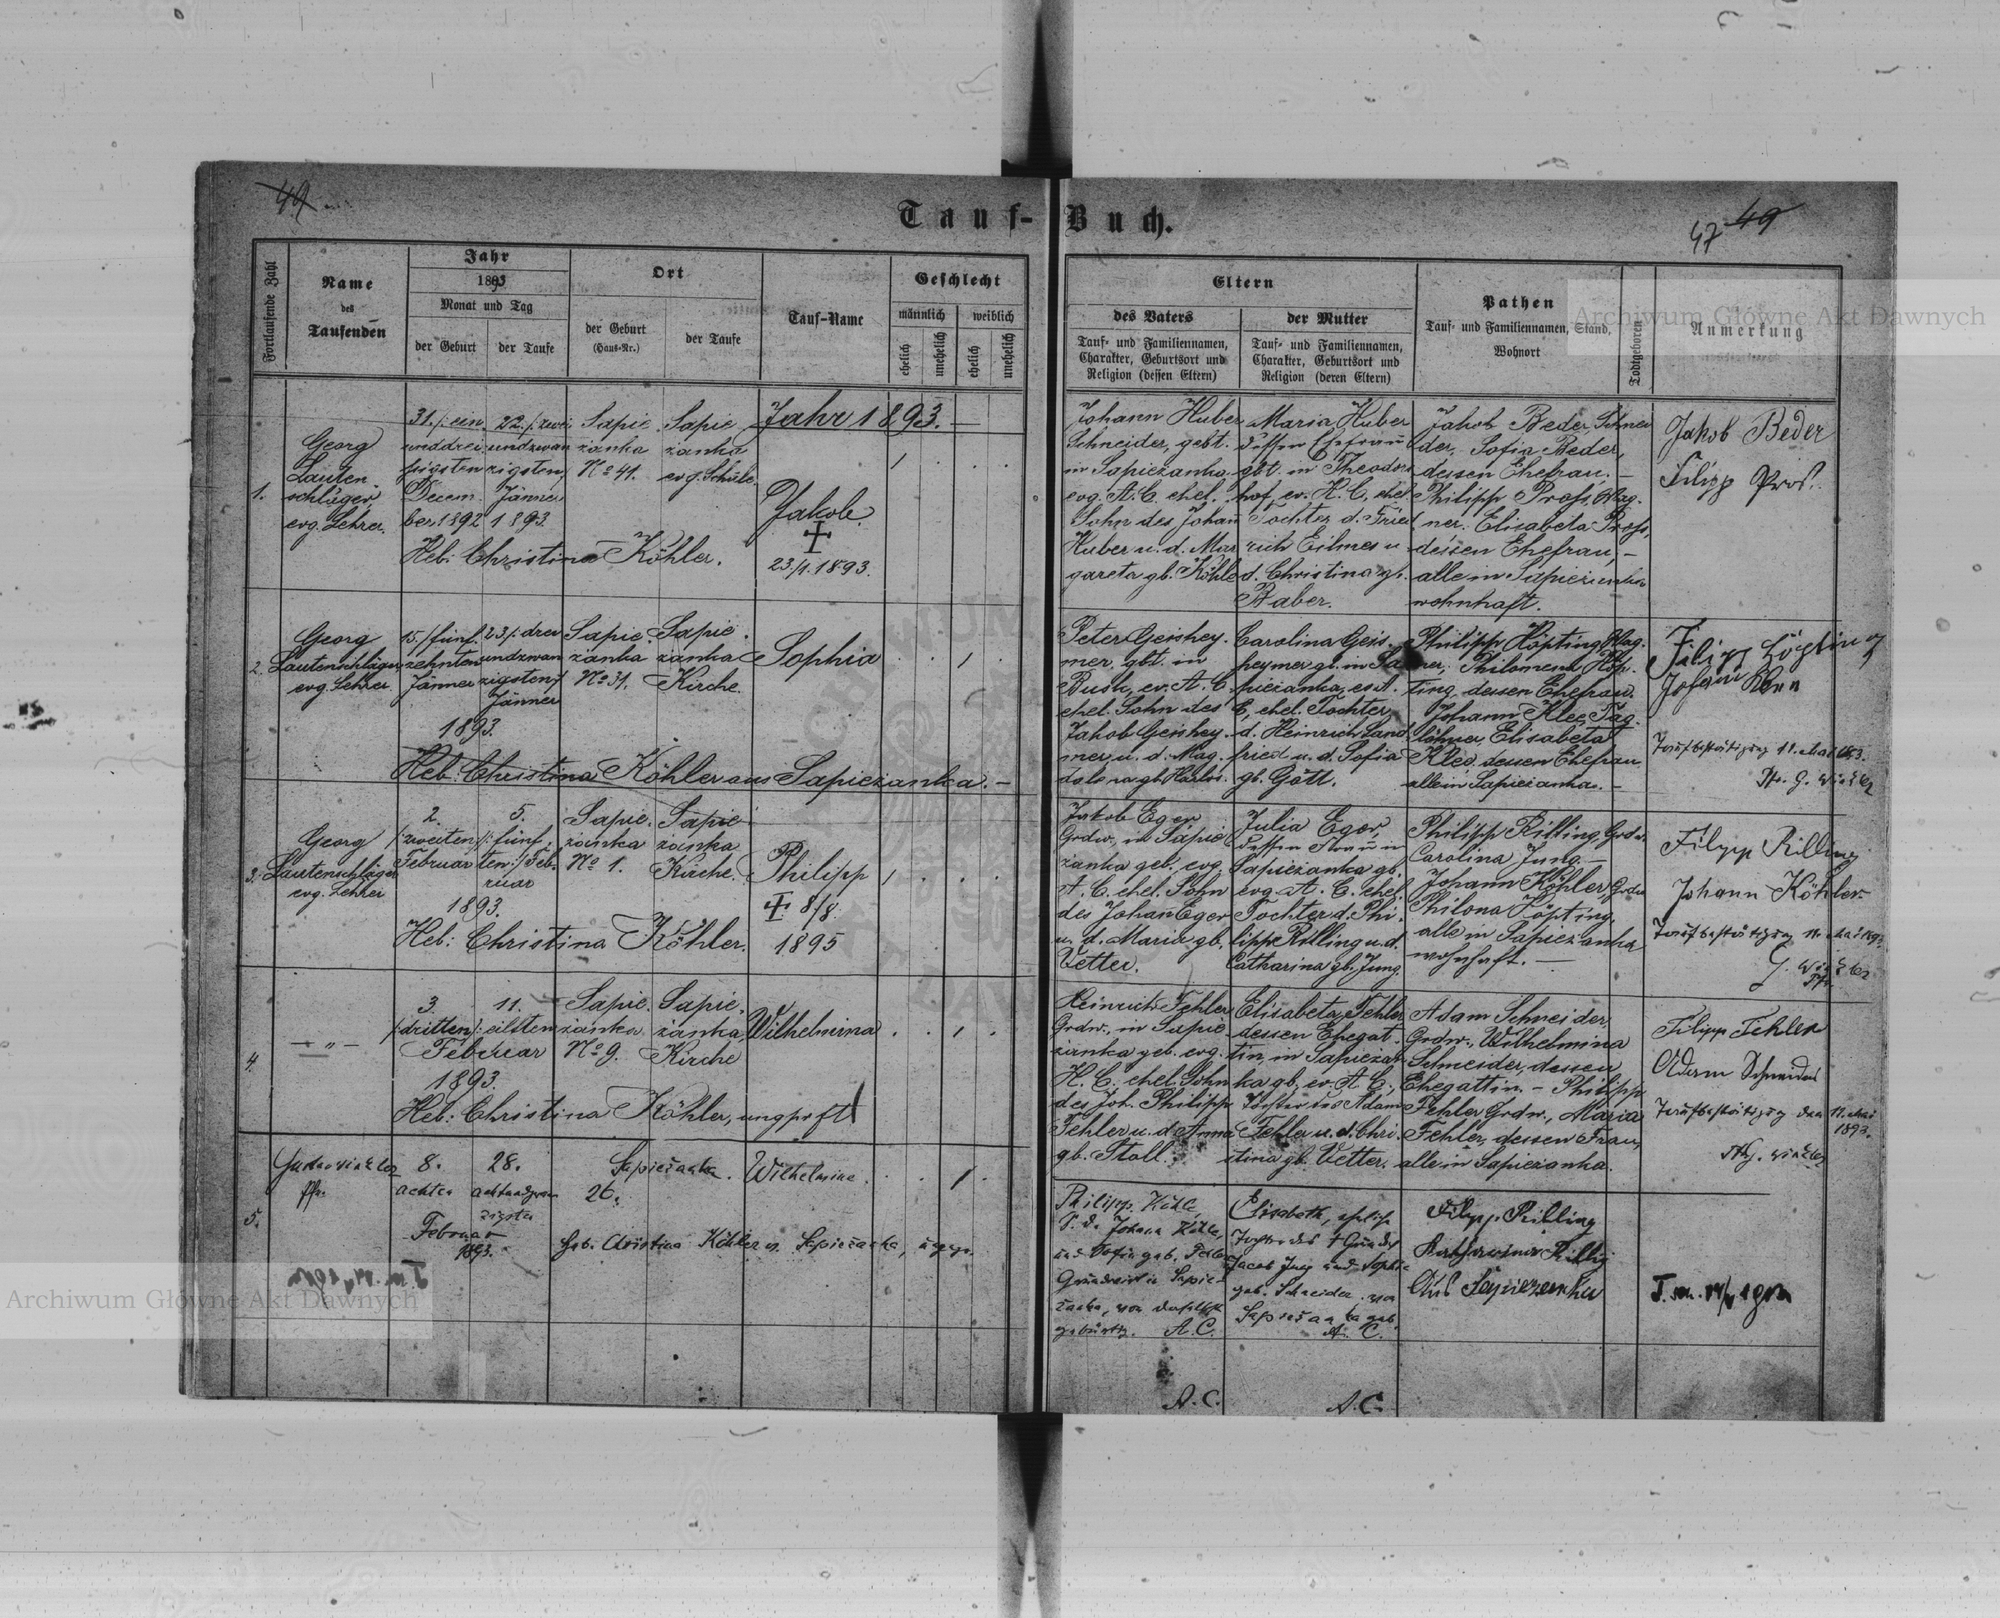 49
Tauf-Buch.
47 49
Fortlaufende Zahl
Name
des
Taufenden
Jahr
1893
Monat und Tag
der Geburt
der Taufe
Ort
der Geburt
(Haus-Nr.)
der Taufe
Tauf-Name
Geschlecht
männlich
weiblich
ehelich
unehelich
ehelich
unehelich
Eltern
des Vaters
Tauf- und Familiennamen,
Charakter, Geburtsort und
Religion (dessen Eltern)
der Mutter
Tauf- und Familiennamen,
Charakter, Geburtsort und
Religion (deren Eltern)
Pathen
Tauf- und Familiennamen, Stand,
Wohnort
Todtgeboren
Anmerkung
Archiwum Główne Akt Dawnych
Jahr 1893.
1.
Georg
Lauten-
schläger
evg. Lehrer.
31. /: ein
unddrei
ßigsten
Decem-
ber 1892
22. /: zwei
undzwan
zigsten
Jänner
1893.
Sapie
zanka
No 41.
Sapie
zanka
evg. Schule.
Jakob.
23./1. 1893.
Heb: Christina Köhler.
Johann Huber
Schneider, gebt.
in Sapiezanka
evg. A. C. ehel.
Sohn des Johann
Huber u. d. Mar
gareta gb. Köhle
Maria Huber
dessen Ehefrau
gbt. in Theodors
hof, ev. H. C. ehel.
Tochter d. Fried
rich Eilmes u
d. Christina gb.
Baber.
Jakob Beder, Schnei
der, Sofia Beder,
dessen Ehefrau; —
Philipp Pross, Wag-
ner. Elisabeta Pross,
dessen Ehefrau, —
alle in Sapiezanka
wohnhaft.
Jakob Beder
Filipp Pros.
2.
Georg
Lautenschläger
evg. Lehrer
15. /: fünf-
zehnten
Jänner
23. /: drei
undzwan
zigsten
Jänner
1893.
Sapie-
zanka
No 31.
Sapie-
zanka
Kirche.
Sophia
Heb: Christina Köhler aus Sapiezanka. —
Peter Geishey-
mer, gbt. in
Busk, ev. A. C
ehel. Sohn des
Jakob Geishey-
mer u. d. Mag-
dalena gb.
Carolina Geis-
heymer gb. in Sa
piezanka, ev. A.
C, ehel. Tochter
d. Heinrich Land
fried u. d. Sofia
gb. Gött.
Philipp Höpting, Wag-
ner, Philomena Höp-
ting, dessen Ehefrau,
Johann Klee, Tag-
löhner, Elisabeta
Klee, dessen Ehefrau
alle in Sapiezanka. —
Filipp Höpting
Johann Klee
Taufbestätigung 11. Mai 1893.
Pfr. G.
3.
Georg
Lautenschläger
evg. Lehrer
2.
/: zweiten :/
Februar
5.
/: fünf-
ten :/ Feb-
ruar
1893.
Sapie-
zanka
No 1.
Sapie-
zanka
Kirche.
Philipp
8/8.
1895
Heb: Christina Köhler.
Jakob Eger
Grdw., in Sapie
zanka geb. evg.
A. C. ehel. Sohn
des Johan Eger
u. d. Maria gb.
Vetter.
Julia Eger,
dessen Frau in
Sapiezanka gb.
evg. A. C. ehel.
Tochter d. Phi-
lipp Rilling u. d.
Catharina gb. Jung.
Philipp Rilling, Grdw.
Carolina Jung. —
Johann Köhler Grdw
Philona Höpting,
alle in Sapiezanka
wohnhaft. —
Filipp Rilling
Johann Köhler
Taufbestätigung 11. Mai 1893
4.
— " —
3.
/: dritten :/
11.
/: eilften
Februar
1893.
Sapie-
zanka
No 9.
Sapie-
zanka
Kirche
Wilhelmina
Heb: Christina Köhler, ungprft
Heinrich Fehler
Grdw., in Sapie-
zanka geb. evg.
H. C. ehel. Sohn
des Joh. Philipp
Fehler u. d. Anna
gb. Stoll.
Elisabeta Fehler
dessen Ehegat-
tin, in Sapiezan
ka gb. ev. A. C.,
Tochter des Adam
Fehler u. d. Chri-
stina gb. Vetter.
Adam Schneider,
Grdw., Wilhelmina
Schneider, dessen
Ehegattin. — Philipp
Fehler Grdw., Maria
Fehler, dessen Frau,
alle in Sapiezanka.
Filipp Fehler
Adam Schneider
Taufbestätigung den 11. Mai
1893.
5.
Pfr.
8.
achten
28.
achtundzwan
zigsten
Februar
1893.
Sapiežanka.
26.
Wilhelmine.
Heb. Christina Köhler v. Sapiežanka,
Philipp Köhle,
S. d. Johann Köhle,
und Sofia geb.
Grundwirt in Sapie-
žanka, von daselbst
gebürtig. A. C.
Elisabeth, eheliche
Tochter des
Jacob Jung und Sophie
geb. Schneider von
Sapiežanka geb.
A. C.
Filipp Rilling
Katharina Rillig
Aus Sapiezanka
A. C.
A. C.
Archiwum Główne Akt Dawnych